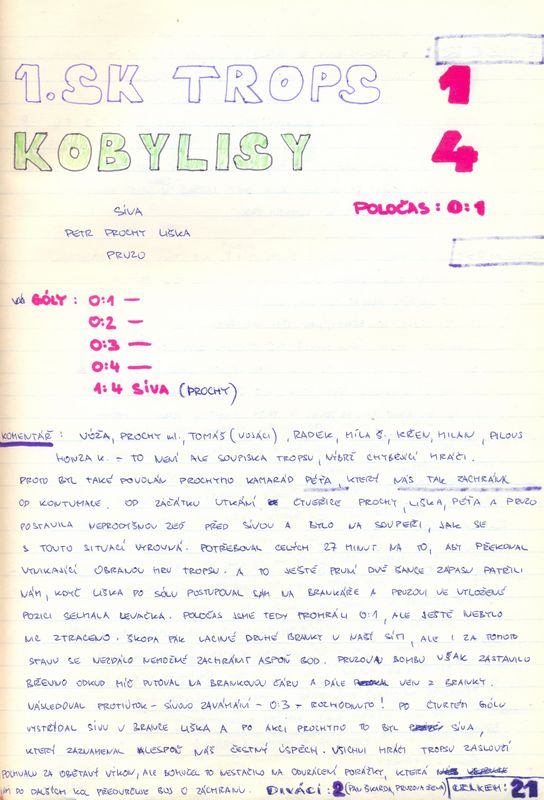 1.SK TROPS 1
KOBYLISY 4
SÍVA
POLOČAS: 0:1
PETR PROCHY LIŠKA
PRUZO
GÓLY: 0:1 —
0:2 —
0:3 —
0:4 —
1:4 SÍVA (PROCHY)
KOMENTÁŘ: VÓŽA, PROCHY ml., TOMÁŠ (VOJÁCI), RADEK, MÍLA Š., KŘEN, MILAN, PILOUS
HONZA K. – TO NENÍ ALE SOUPISKA TROPSU, NÝBRŽ CHYBĚJÍCÍ HRÁČI.
PROTO BYL TAKÉ POVOLÁN PROCHYHO KAMARÁD PÉŤA, KTERÝ NÁS TAK ZACHRÁNIL
OD KONTUMACE. OD ZAČÁTKU UTKÁNÍ ČTVEŘICE PROCHY, LIŠKA, PÉŤA A PRUZO
POSTAVILA NEPRODYŠNOU ZEĎ PŘED SÍVOU A BYLO NA SOUPEŘI, JAK SE
S TOUTO SITUACÍ VYROVNÁ. POTŘEBOVAL CELÝCH 27 MINUT NA TO, ABY PŘEKONAL
VYNIKAJÍCÍ OBRANOU HRU TROPSU. A TO JEŠTĚ PRVNÍ DVĚ ŠANCE ZÁPASU PATŘILI
NÁM, KDYŽ LIŠKA PO SÓLU POSTUPOVAL SÁM NA BRANKÁŘE A PRUZOVI VE VYLOŽENÉ
POZICI SELHALA LEVAČKA. POLOČAS JSME TEDY PROHRÁLI 0:1, ALE JEŠTĚ NEBYLO
NIC ZTRACENO. ŠKODA PAK LACINÉ DRUHÉ BRANKY V NAŠÍ SÍTI, ALE I ZA TOHOTO
STAVU SE NEZDÁLO NEMOŽNÉ ZACHRÁNIT ASPOŇ BOD. PRUZOVU BOMBU VŠAK ZASTAVILO
BŘEVNO ODKUD MÍČ PUTOVAL NA BRANKOVOU ČÁRU A DÁLE VEN Z BRANKY.
NÁSLEDOVAL PROTIÚTOK – SÍVOVO ZAVÁHÁNÍ – 0:3 – ROZHODNUTO! PO ČTVRTÉM GÓLU
VYSTŘÍDAL SÍVU V BRANCE LIŠKA A PO AKCI PROCHYHO TO BYL SÍVA,
KTERÝ ZAZNAMENAL ALESPOŇ NÁŠ ČESTNÝ ÚSPĚCH. VŠICHNI HRÁČI TROPSU ZASLOUŽÍ
POCHVALU ZA OBĚTAVÝ VÝKON, ALE BOHUŽEL TO NESTAČILO NA ODVRÁCENÍ PORÁŽKY, KTERÁ
DO DALŠÍCH KOL PŘEDURČUJE BOJ O ZÁCHRANU. DIVÁCI: 2 (PAN ŠKARDA, PRUZOVA ŽENA) CELKEM: 21